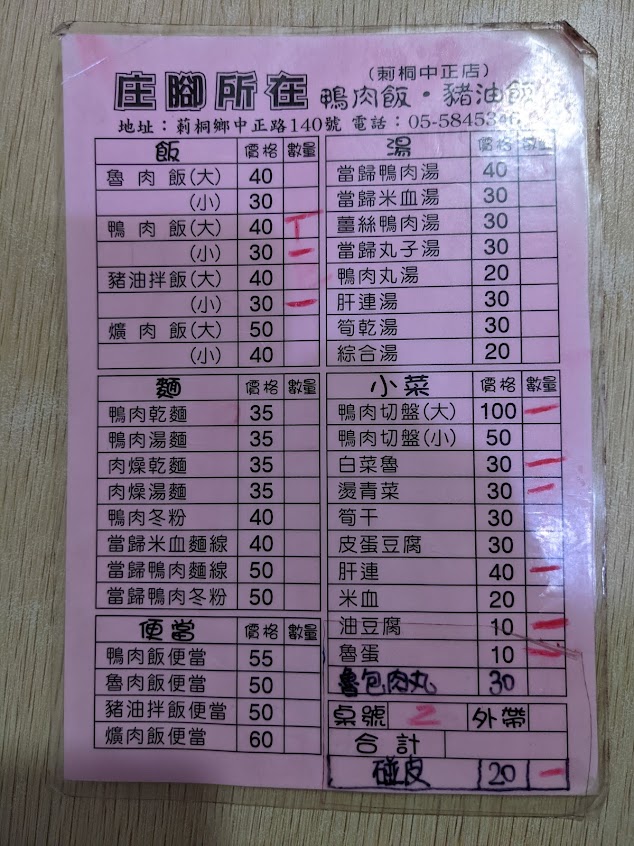 (莿桐中正店)
庄腳所在 鴨肉飯・豬油飯
地址：莿桐鄉中正路140號 電話：05-5845346
飯 價格 數量
魯肉飯(大) 40
(小) 30
鴨肉飯(大) 40 T
(小) 30 一
豬油拌飯(大) 40
(小) 30 一
爌肉飯(大) 50
(小) 40
麵 價格 數量
鴨肉乾麵 35
鴨肉湯麵 35
肉燥乾麵 35
肉燥湯麵 35
鴨肉冬粉 40
當歸米血麵線 40
當歸鴨肉麵線 50
當歸鴨肉冬粉 50
便當 價格 數量
鴨肉飯便當 55
魯肉飯便當 50
豬油拌飯便當 50
爌肉飯便當 60
湯 價格 數量
當歸鴨肉湯 40
當歸米血湯 30
薑絲鴨肉湯 30
當歸丸子湯 30
鴨肉丸湯 20
肝連湯 30
筍乾湯 30
綜合湯 20
小菜 價格 數量
鴨肉切盤(大) 100 一
鴨肉切盤(小) 50
白菜魯 30 一
燙青菜 30 一
筍干 30
皮蛋豆腐 30
肝連 40 一
米血 20
油豆腐 10 一
魯蛋 10 一
魯包肉丸 30
桌號 2 外帶
合計
碰皮 20 一